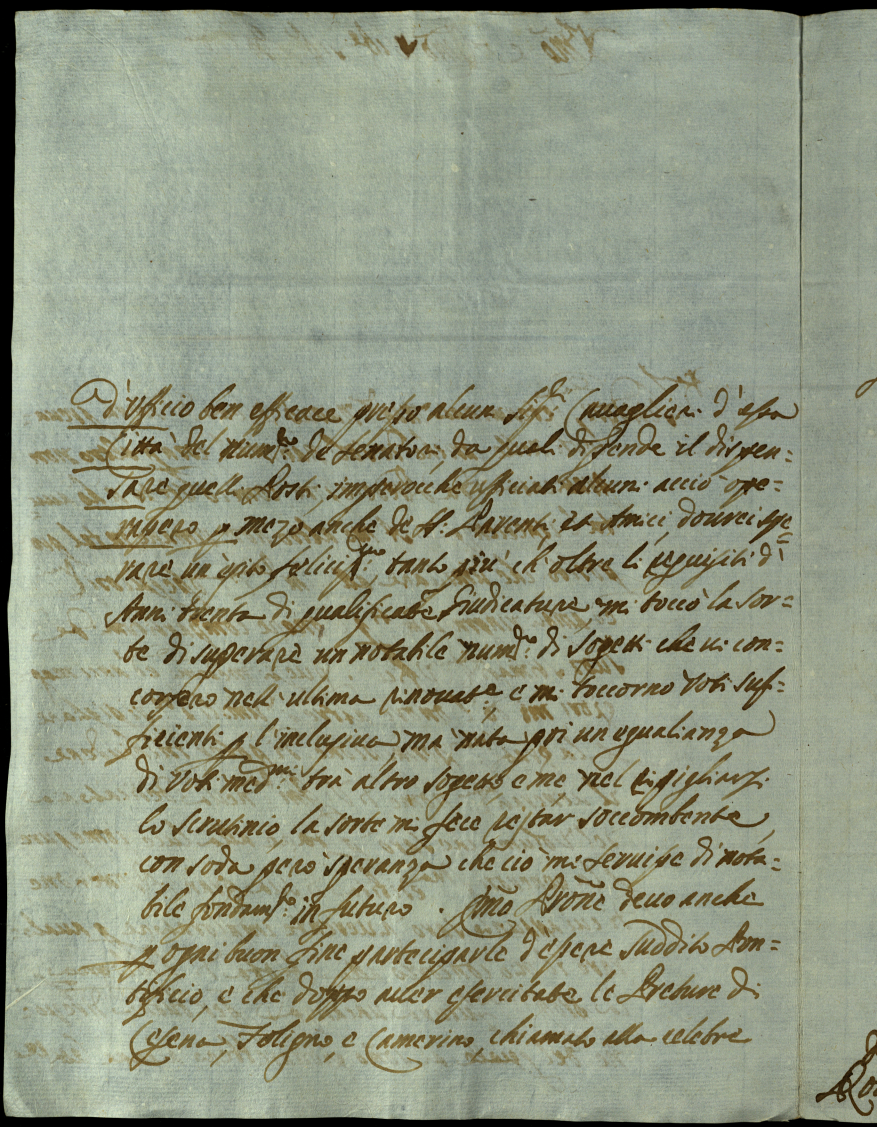 d'ufficio ben efficace presso alcun Sig.ri Cavaglieri d'essa
Città del num.ro de Senatori, da quali dipende il dispen=
sare quelli Posti, imperocché ufficiati alcuni acciò ope=
rassero p mezo anche de SS. Parenti et Amici, dovrei spe=
rare un esito felicis.mo, tanto più ch'oltre li requisiti di
Anni trenta di qualificate Giudicature, mi toccò la sor=
te di superare un notabile num.ro di sogetti che vi con=
corsero nell'ultima rinovat.e, e mi toccorno Voti suf=
ficienti p l'inclusiva, ma nata poi un egualianza
di Voti med.mi trà altro sogetto e me, nel ripigliarsi
lo scrutinio, la sorte mi fece restar soccombente,
con soda però speranza che ciò mi servisse di nota=
bile fondam.to in futuro. Ill.mo Prōne devo anche
p ogni buon fine parteciparle d'essere suddito Pon=
tificio, e che doppo aver esercitate le Preture di
Cesena, Foligno, e Camerino, chiamato alla celebre